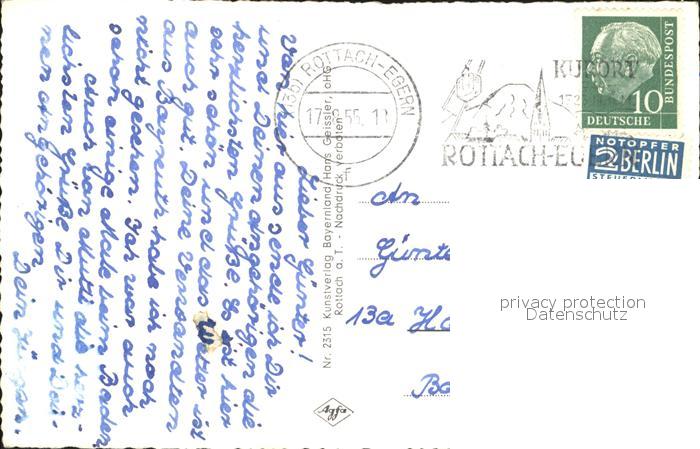 Lieber Günter!
Von hier aus sende ich Dir
und Deinen Angehörigen die
herzlichsten Grüße. Es ist hier
sehr schön und das Wetter ist
auch gut. Deine Verwandten
aus Bayreuth habe ich noch
nicht gesehen. Ich war auch
schon einige Male beim Baden
Auch von Mutti die herz-
lichsten Grüße Dir und Dei-
nen Angehörigen
Dein Jürgen.
Nr. 2315 Kunstverlag Bayernland/Hans Geissler, oHG
Rottach a. T. - Nachdruck verboten
Agfa
(13b) ROTTACH-EGERN
KURORT
ROTTACH-EG
10
DEUTSCHE
BUNDESPOST
NOTOPFER
2 BERLIN
STEUER
An
Günte
13a
privacy protection
Datenschutz